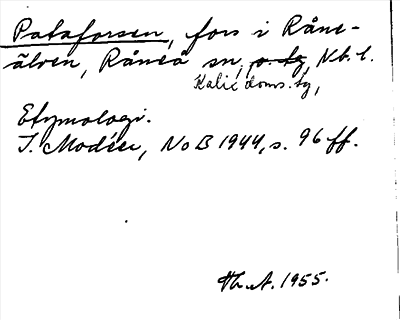 Pataforsen, fors i Råne-
älven, Råneå sn, o. tg, Nb. l.
Kalix doms. tg,
Etymologi.
I. Modéer, NoB 1944, s. 96 ff.
Th. A. 1955.